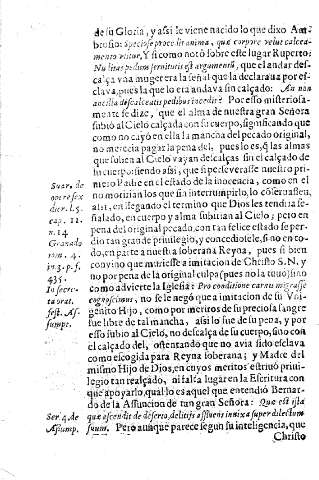 de su Gloria, y assi le viene nacido lo que dixo Am
brosio: Speciose procedit anima, quæ corpore velut calcea-
mento vtitur, Y si como notò sobre este lugar Ruperto:
Nuditas pedum seruitutis est argumentū, que el andar des-
calça vna muger era la señal que la declaraua por es-
claua, pues la que lo era andaua sin calçado: An non
ancilla discalceatis pedibus incedit? Por esso misteriosa-
mente se dize, que el alma de nuestra gran Señora
subiò al Cielo calçada con su cuerpo, significando que
como no cayò en ella la mancha del pecado original,
no merecia pagar la pena del, pues lo es, q̃ las almas
que suben al Cielo vayan descalças sin el calçado de
su cuerpo, siendo assi, que si perseuerasse nuestro pri-
mero Padre en el estado de la inocencia, como en el
no moririan los que sin interrumpirlo, lo cõseruassen,
assi, en llegando el termino que Dios les tendria se-
ñalado, en cuerpo y alma subirian al Cielo; pero en
pena del original pecado, con tan felice estado se per-
dio tan grande priuilegio, y concediosele, si no en to-
do, en parte a nuestra soberana Reyna, pues si bien
conuino que muriesse a imitacion de Christo S. N. y
no por pena de la original culpa (pues no la tuuo) sino
como aduierte la Iglesia: Pro conditione carnis migrasse
cognoscimus, no se le negò a imitacion de su Vni-
genito Hijo, como por meritos de su preciosa sangre
fue libre de tal mancha, assi lo fue de su pena, y por
esso subiò al Cielo, no descalça de su cuerpo, sino con
el calçado del, ostentando que no auia sido esclaua
como escogida para Reyna soberana; y Madre del
mismo Hijo de Dios, en cuyos meritos estriuò priui-
legio tan realçado, ni falta lugar en la Escritura con
que apoyarlo, qual lo es aquel que entendiò Bernar-
do de la Assuncion de tan gran Señora: Quæ est ista
quæ ascendit de deserto, delitijs affluens innixa super dilectum
suum. Pero aunque parece segun su inteligencia, que
Christo
Suar. de
opere sex
dier. l. 5.
cap. 12.
n. 14
Granada
tom. 4.
in 3. p. f.
435.
In secre-
ta orat.
fest. As-
sumpt.
Ser. 4. de
Assump.